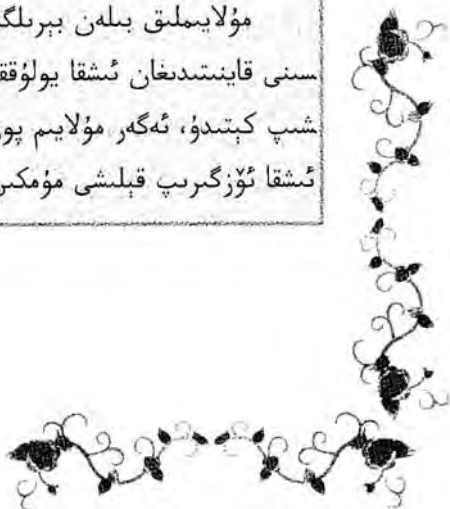 مۇلايىملىق بىلەن بېرىلگ
ىسىنى قاينىتىدىغان ئىشقا يولۇقق
ىشىپ كېتىدۇ، ئەگەر مۇلايىم پوز
ئىشقا ئۆزگىرىپ قېلىشى مۇمكىن